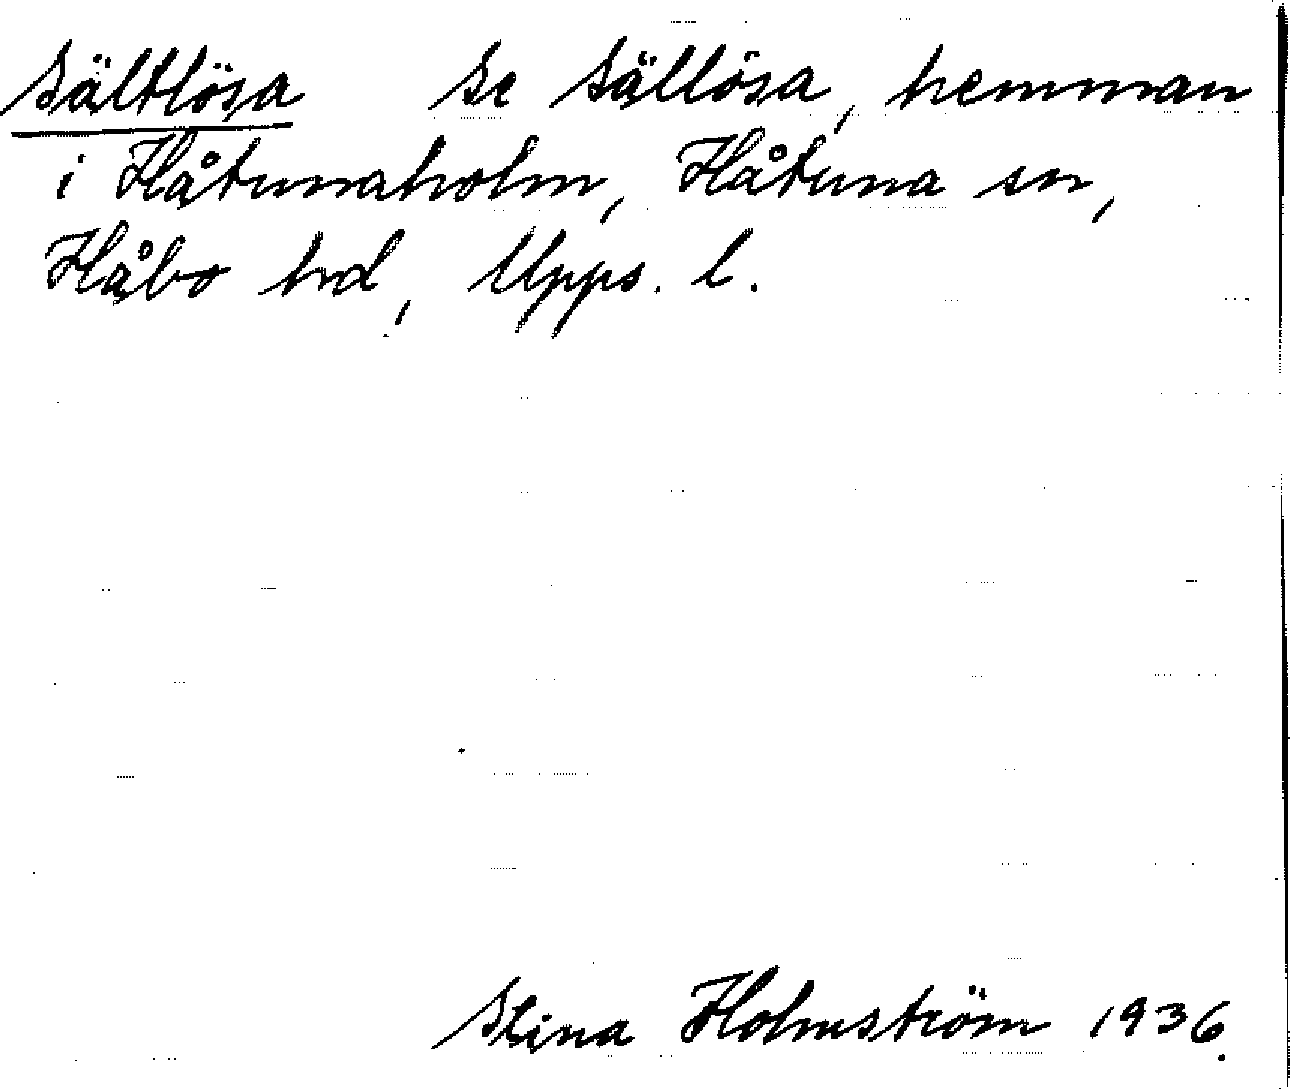 Sältlösa se Sällösa, hemman
i Håtunaholm, Håtuna sn,
Håbo hd, Upps. l.
Stina Holmström 1936.